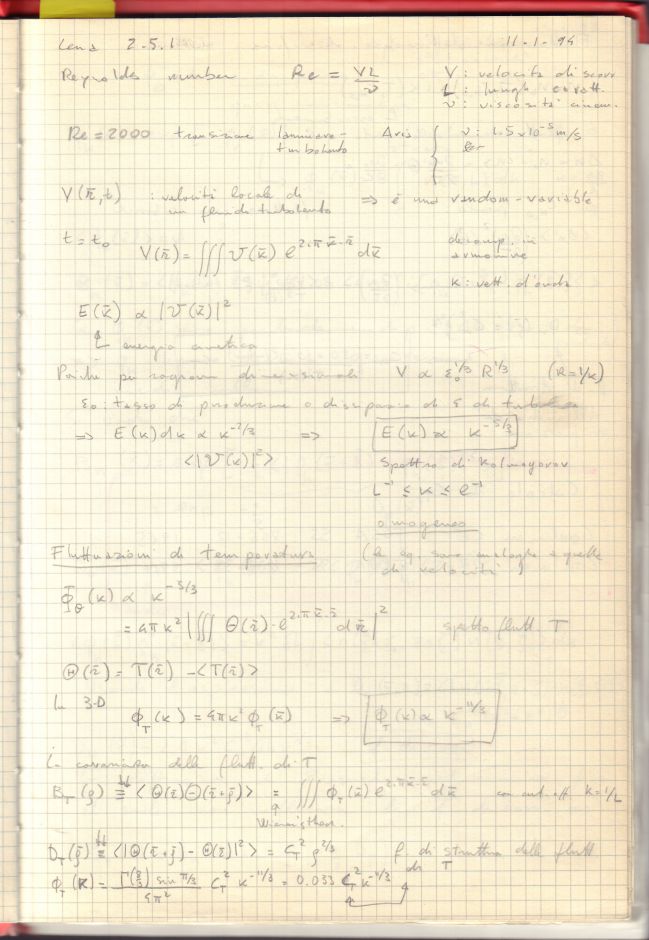 Lena 2.5.1 11-1-94
Reynolds number Re = VL/ν V: velocità di scorr.
L: lungh. caratt.
ν: viscosità cinem.
Re = 2000 transizione laminare- Aria { ν: 1.5 x 10⁻⁵ m/s
turbolento
V(r̄,t) : velocità locale di => è una random-variable
un fluido turbolento
t = t₀ V(r̄) = ∭ 𝒱(k̄) e^{2·π k̄·r̄} dk̄ decomp. in
armoniche
k: vett. d'onda
E(k̄) ∝ |𝒱(k̄)|²
energia cinetica
Poiché per ragioni dimensionali V ∝ ε₀^{1/3} R^{1/3} (R=1/k)
ε₀: tasso di produzione o dissipazione di ε di
=> E(k)dk ∝ k^{-2/3} => E(k) ∝ k^{-5/3}
<|𝒱(k)|²> Spettro di Kolmogorov
L⁻¹ ≤ k ≤ l⁻¹
omogeneo
Fluttuazioni di temperatura (le eq. sono analoghe a quelle
di velocità)
Φ_θ(k) ∝ k^{-5/3}
= 4πk² |∭ Θ(r̄)·e^{2·π k̄·r̄} dr̄|² spettro flutt. T
Θ(r̄) = T(r̄) - <T(r̄)>
In 3-D
ϕ_T(k) = 4πk² ϕ_T(k̄) => ϕ_T(k) ∝ k^{-11/3}
La covarianza delle flutt. di T
B_T(ρ) ≡ <Θ(r̄)Θ(r̄+ρ̄)> = ∭ ϕ_T(k̄) e^{2·π k̄·r̄} dk̄ con cut-off k=1/L
D_T(ρ̄) ≡ <|Θ(r̄+ρ̄) - Θ(r̄)|²> = C_T² ρ^{2/3} f. di struttura delle flutt
di T
ϕ_T(k) = Γ(8/3) sin π/3 / 4π² C_T² k^{-11/3} = 0.033 C_T² k^{-11/3}